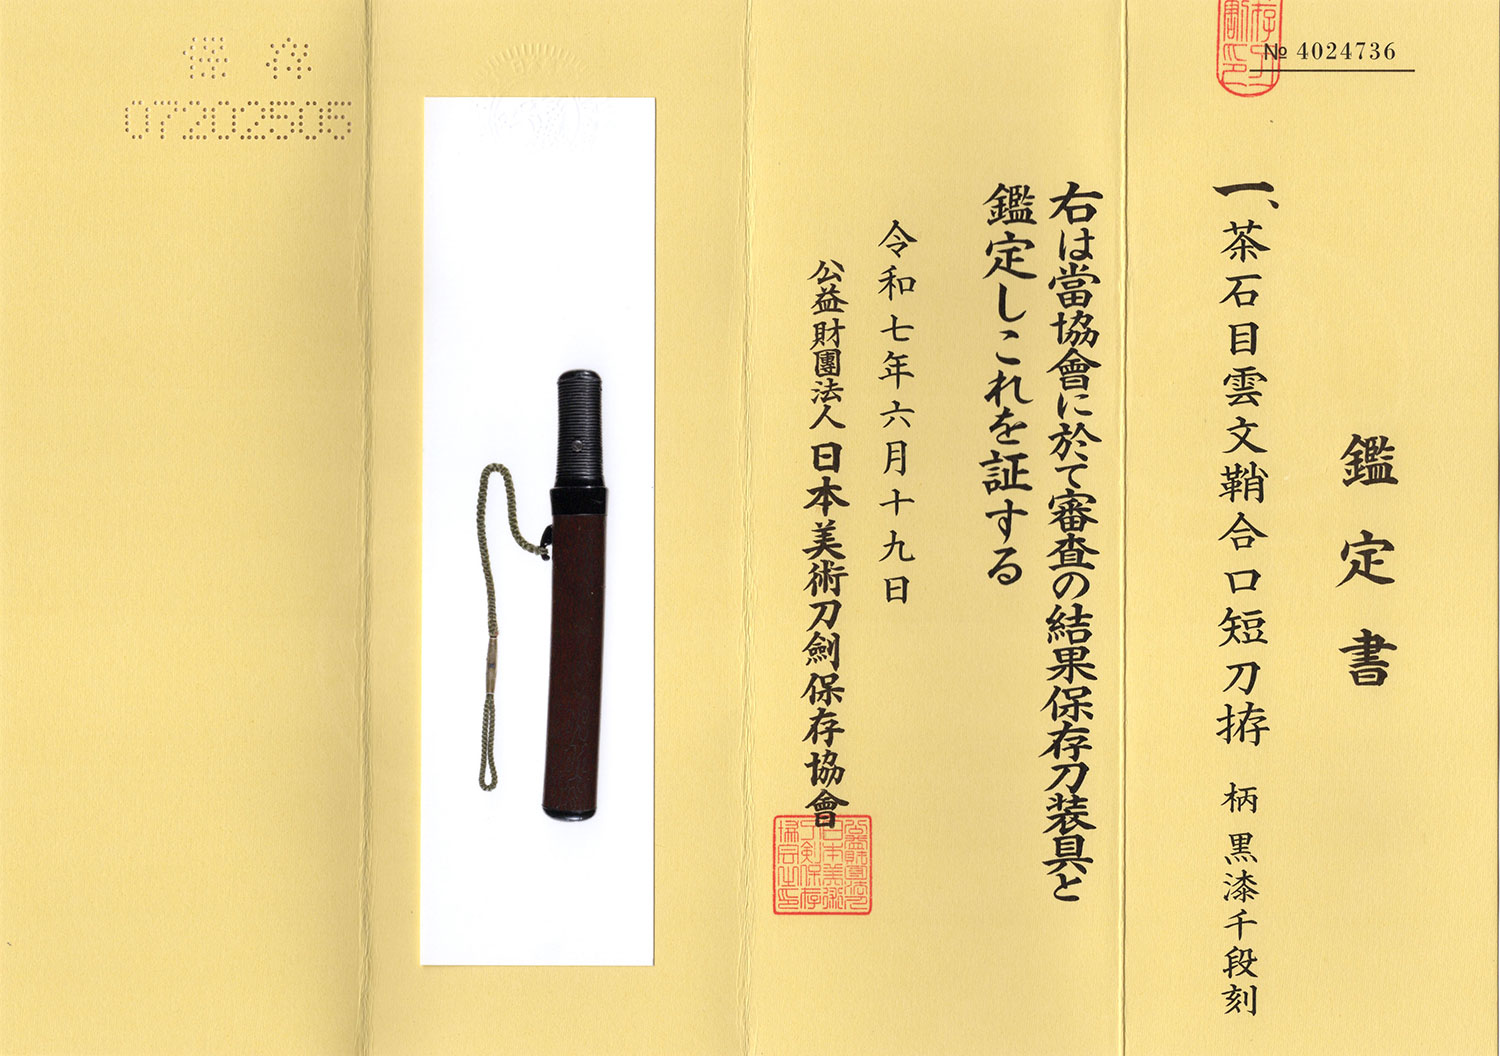 № 4024736
鑑定書
一、茶石目雲文鞘合口短刀拵 柄 黒漆千段刻
右は當協會に於て審査の結果保存刀装具と
鑑定しこれを証する
令和七年六月十九日
公益財團法人 日本美術刀劍保存協會
保存
07202505